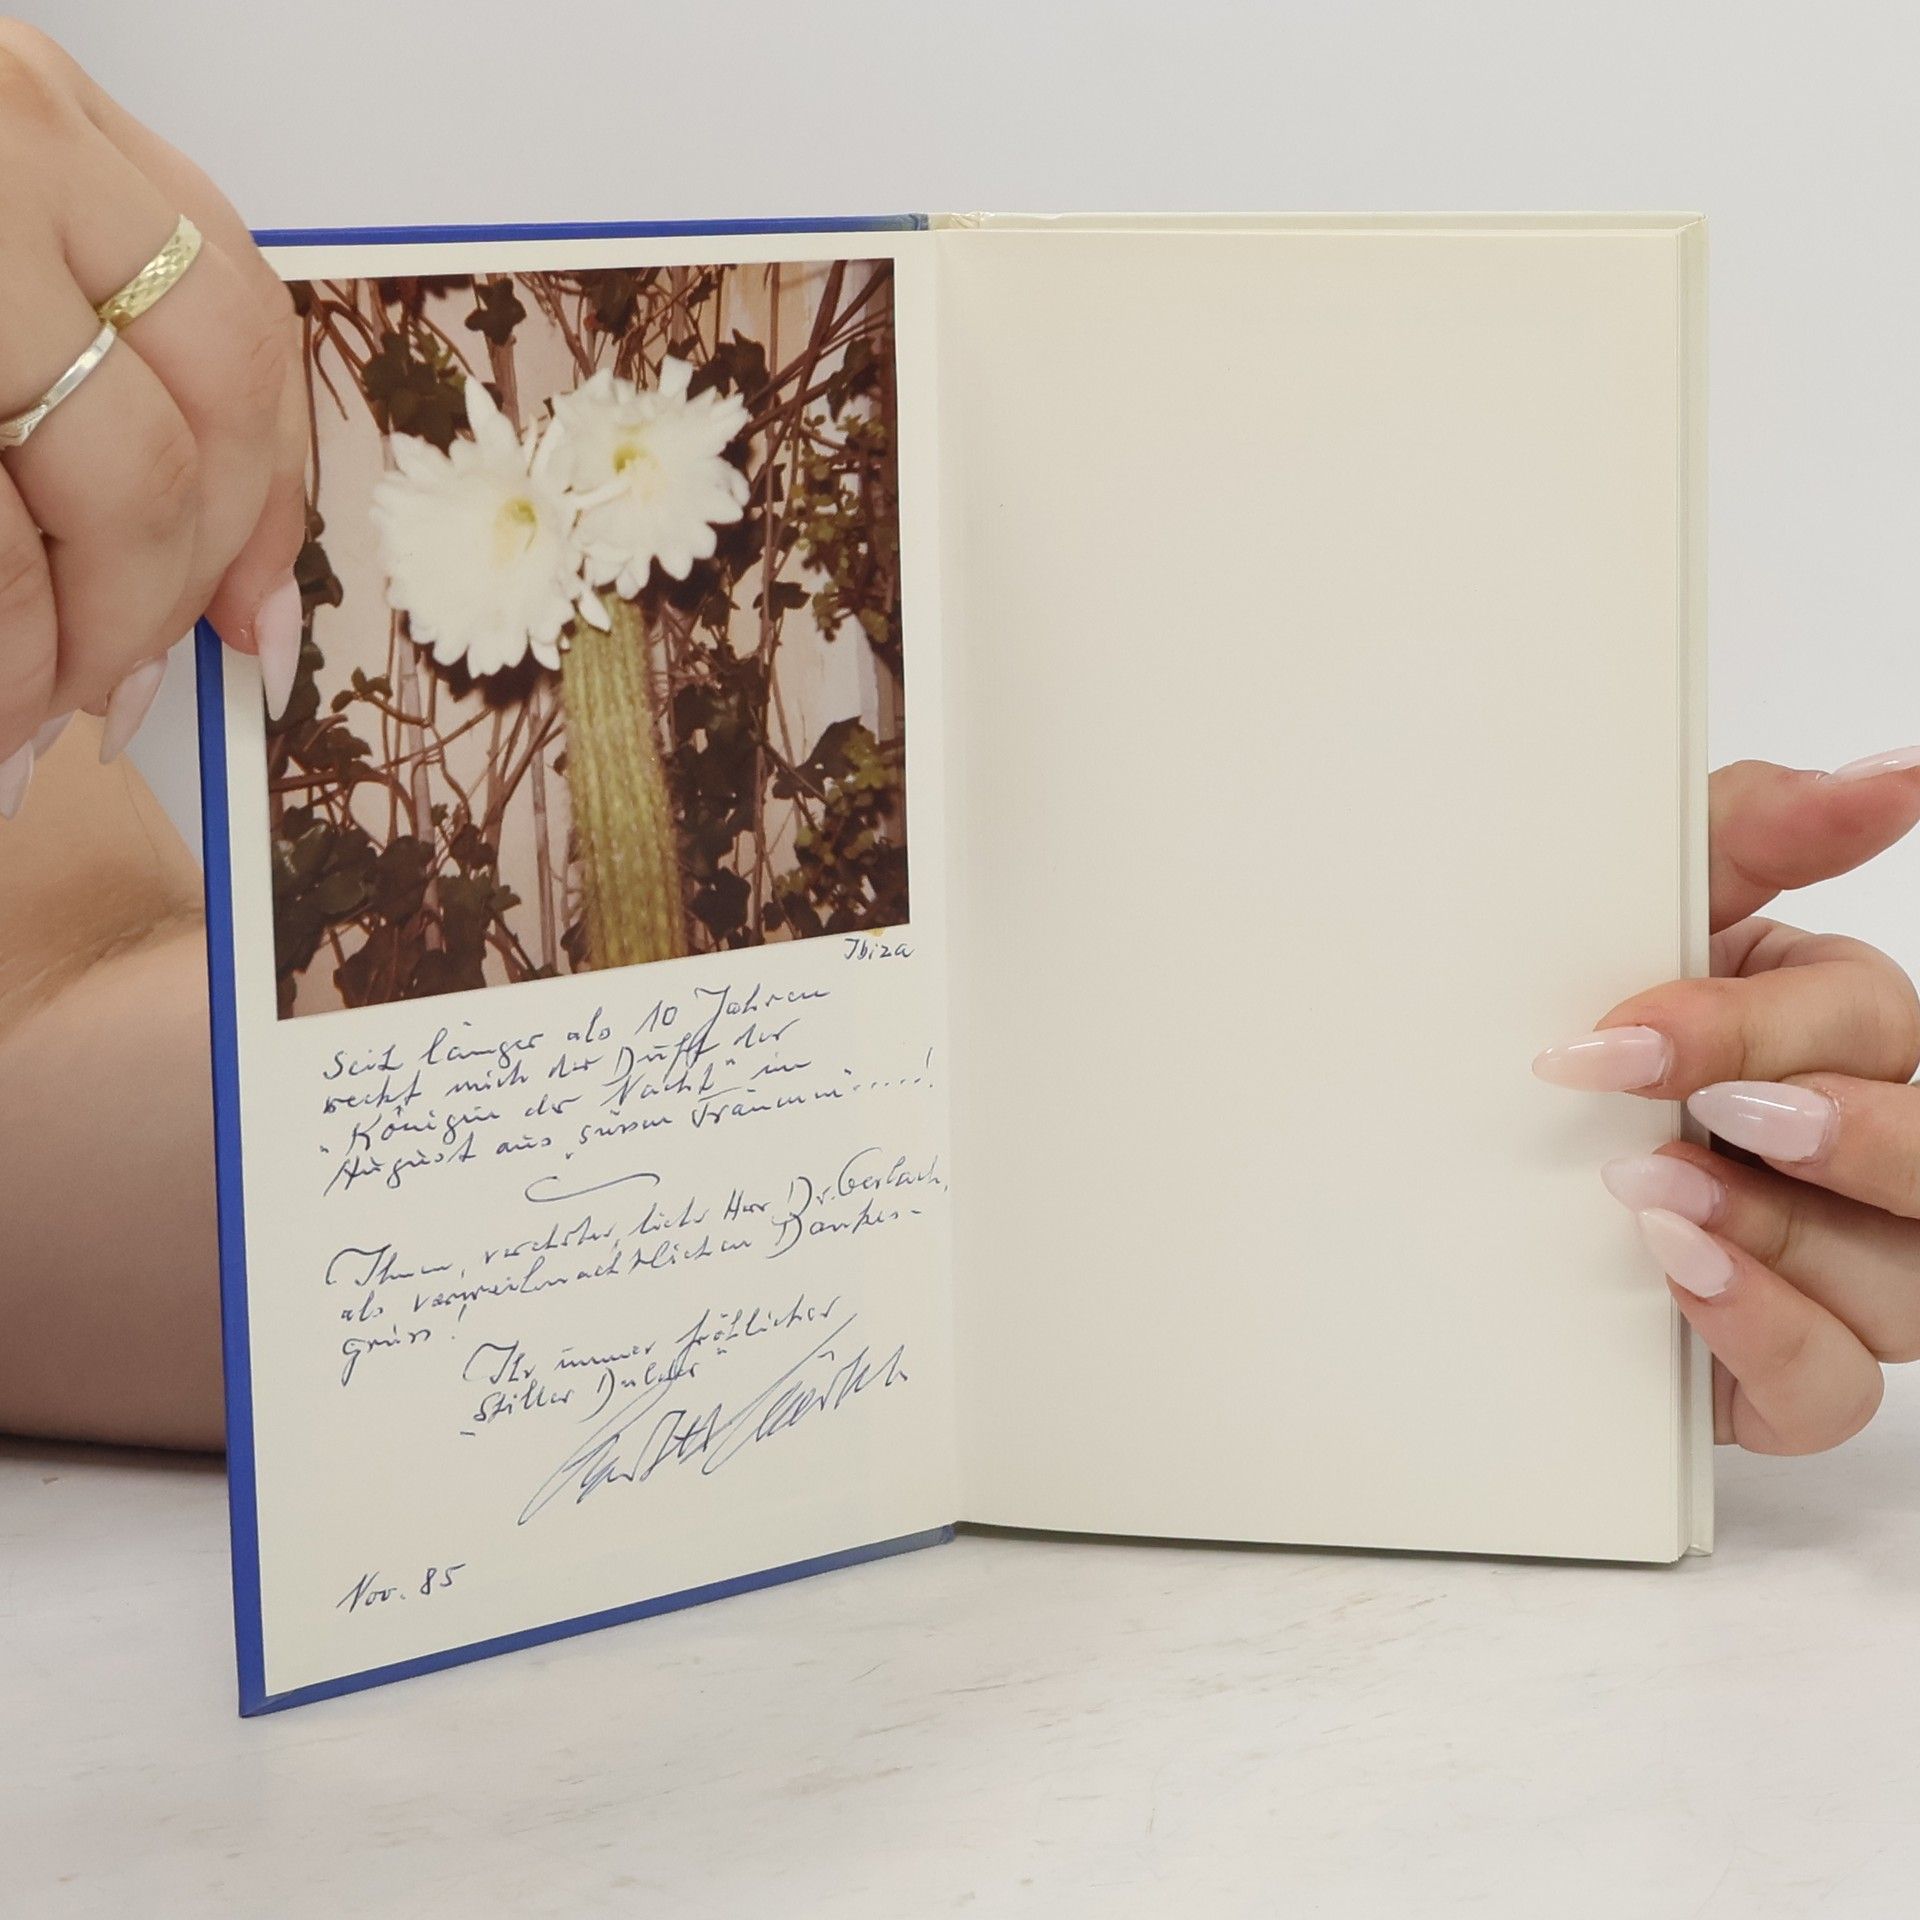 Ibiza
Seit länger als 10 Jahren
weckt mich der Duft der
"Königin der Nacht" im
August aus "süssen Träumen".....!
Ihnen, verehrter, lieber Herr Dr. Gerlach,
als vorweihnachtlichen Dankes-
gruss!
Ihr immer fröhlicher
"Stiller Dulder"
Nov. 85